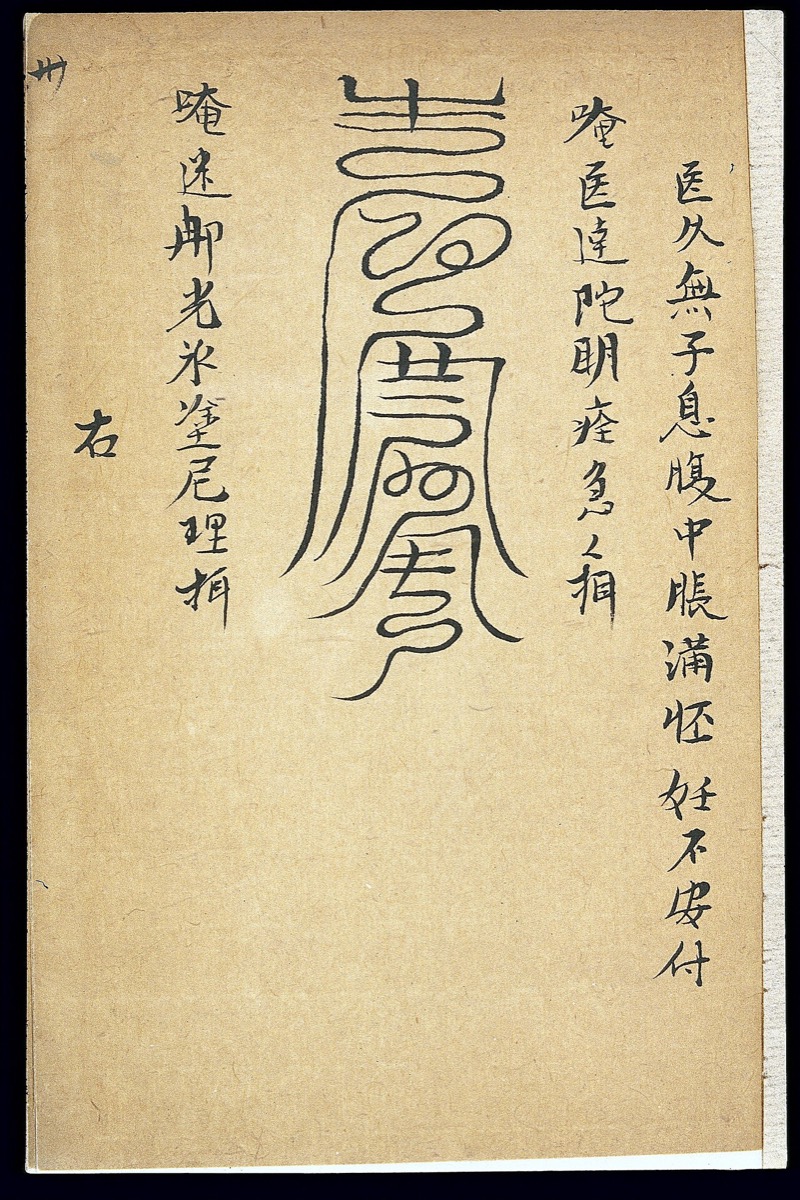 医久無子息腹中脹滿怀妊不安付
唵医達陀明痊急〻揖
唵迷卿光氷塗尼理揖
右
卅